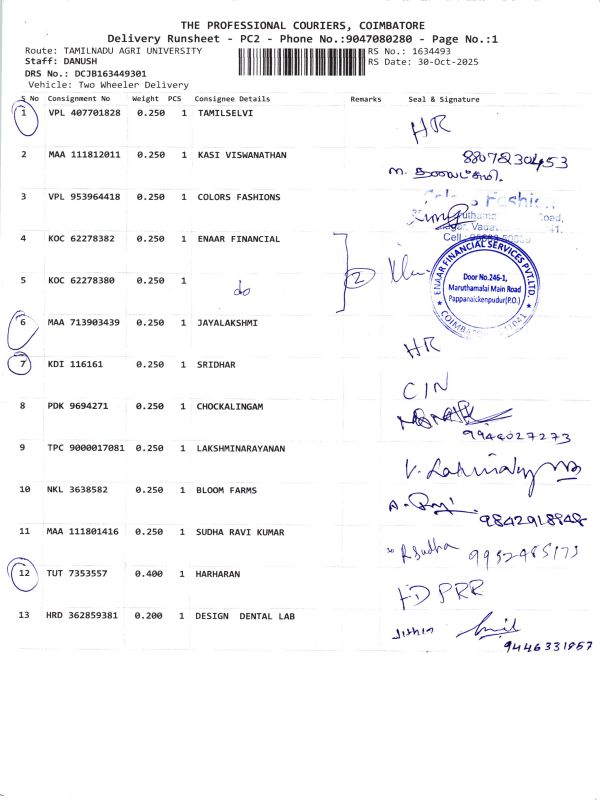 THE PROFESSIONAL COURIERS, COIMBATORE
Delivery Runsheet - PC2 - Phone No.:9047080280 - Page No.:1
Route: TAMILNADU AGRI UNIVERSITY RS No.: 1634493
Staff: DANUSH RS Date: 30-Oct-2025
DRS No.: DCJB163449301
Vehicle: Two Wheeler Delivery
S No Consignment No Weight PCS Consignee Details Remarks Seal & Signature
1 VPL 407701828 0.250 1 TAMILSELVI HR
2 MAA 111812011 0.250 1 KASI VISWANATHAN 8807830453
3 VPL 953964418 0.250 1 COLORS FASHIONS
4 KOC 62278382 0.250 1 ENAAR FINANCIAL
ENAAR FINANCIAL SERVICES PVT.LTD.
Door No.246-1,
Maruthamalai Main Road
Pappanaickenpudur(P.O.)
5 KOC 62278380 0.250 1 do 2
6 MAA 713903439 0.250 1 JAYALAKSHMI HR
7 KDI 116161 0.250 1 SRIDHAR CIN
8 PDK 9694271 0.250 1 CHOCKALINGAM
9944027273
9 TPC 9000017081 0.250 1 LAKSHMINARAYANAN
10 NKL 3638582 0.250 1 BLOOM FARMS
9842918948
11 MAA 111801416 0.250 1 SUDHA RAVI KUMAR RSudha
12 TUT 7353557 0.400 1 HARHARAN
13 HRD 362859381 0.200 1 DESIGN DENTAL LAB Jithin
9446331857